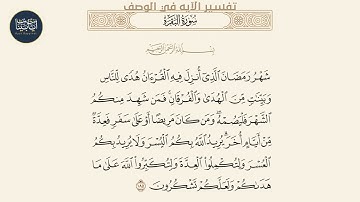 تفسير الآيه في الوصف
سُورَةُ البَقَرَةِ
بِسْمِ اللَّهِ الرَّحْمَٰنِ الرَّحِيمِ
شَهْرُ رَمَضَانَ الَّذِي أُنزِلَ فِيهِ الْقُرْءَانُ هُدًى لِّلنَّاسِ
وَبَيِّنَٰتٍ مِّنَ الْهُدَىٰ وَالْفُرْقَانِ ۚ فَمَن شَهِدَ مِنكُمُ
الشَّهْرَ فَلْيَصُمْهُ ۖ وَمَن كَانَ مَرِيضًا أَوْ عَلَىٰ سَفَرٍ فَعِدَّةٌ
مِّنْ أَيَّامٍ أُخَرَ ۗ يُرِيدُ اللَّهُ بِكُمُ الْيُسْرَ وَلَا يُرِيدُ بِكُمُ
الْعُسْرَ وَلِتُكْمِلُوا۟ الْعِدَّةَ وَلِتُكَبِّرُوا۟ اللَّهَ عَلَىٰ مَا
هَدَىٰكُمْ وَلَعَلَّكُمْ تَشْكُرُونَ ١٨٥